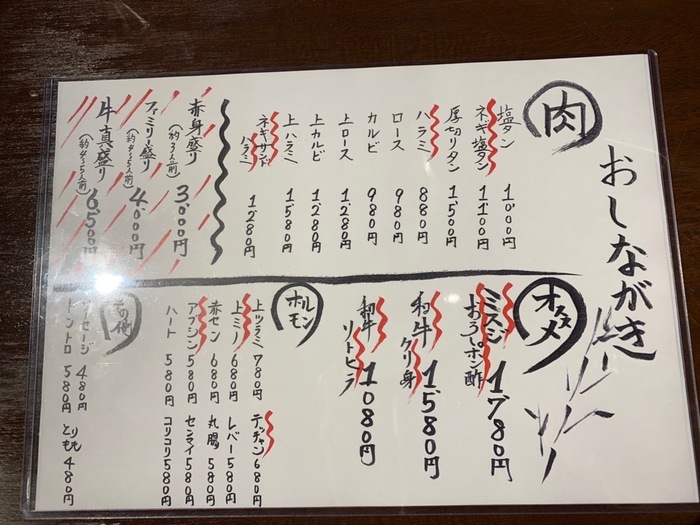 おしながき
肉
塩タン 1,000円
ネギ塩タン 1,100円
厚切りタン 1,500円
ハラミ 880円
ロース 980円
カルビ 980円
上ロース 1,280円
上カルビ 1,280円
上ハラミ 1,580円
ネギサンドハラミ 1,280円
赤身盛り(約3人前) 3,000円
ファミリー盛り(約4~5人前) 4,000円
牛真盛り(約4~5人前) 6,500円
オススメ
ミスジおろしポン酢 1,780円
和牛クリ身 1,580円
和牛リトヒラ 1,080円
ホルモン
上ツラミ 780円
上ミノ 680円
赤セン 680円
アブシン 580円
ハート 580円
テッチャン 680円
レバー 580円
丸腸 580円
センマイ 580円
コリコリ 580円
その他
ソーセージ 480円
トントロ 580円
とりもも 480円